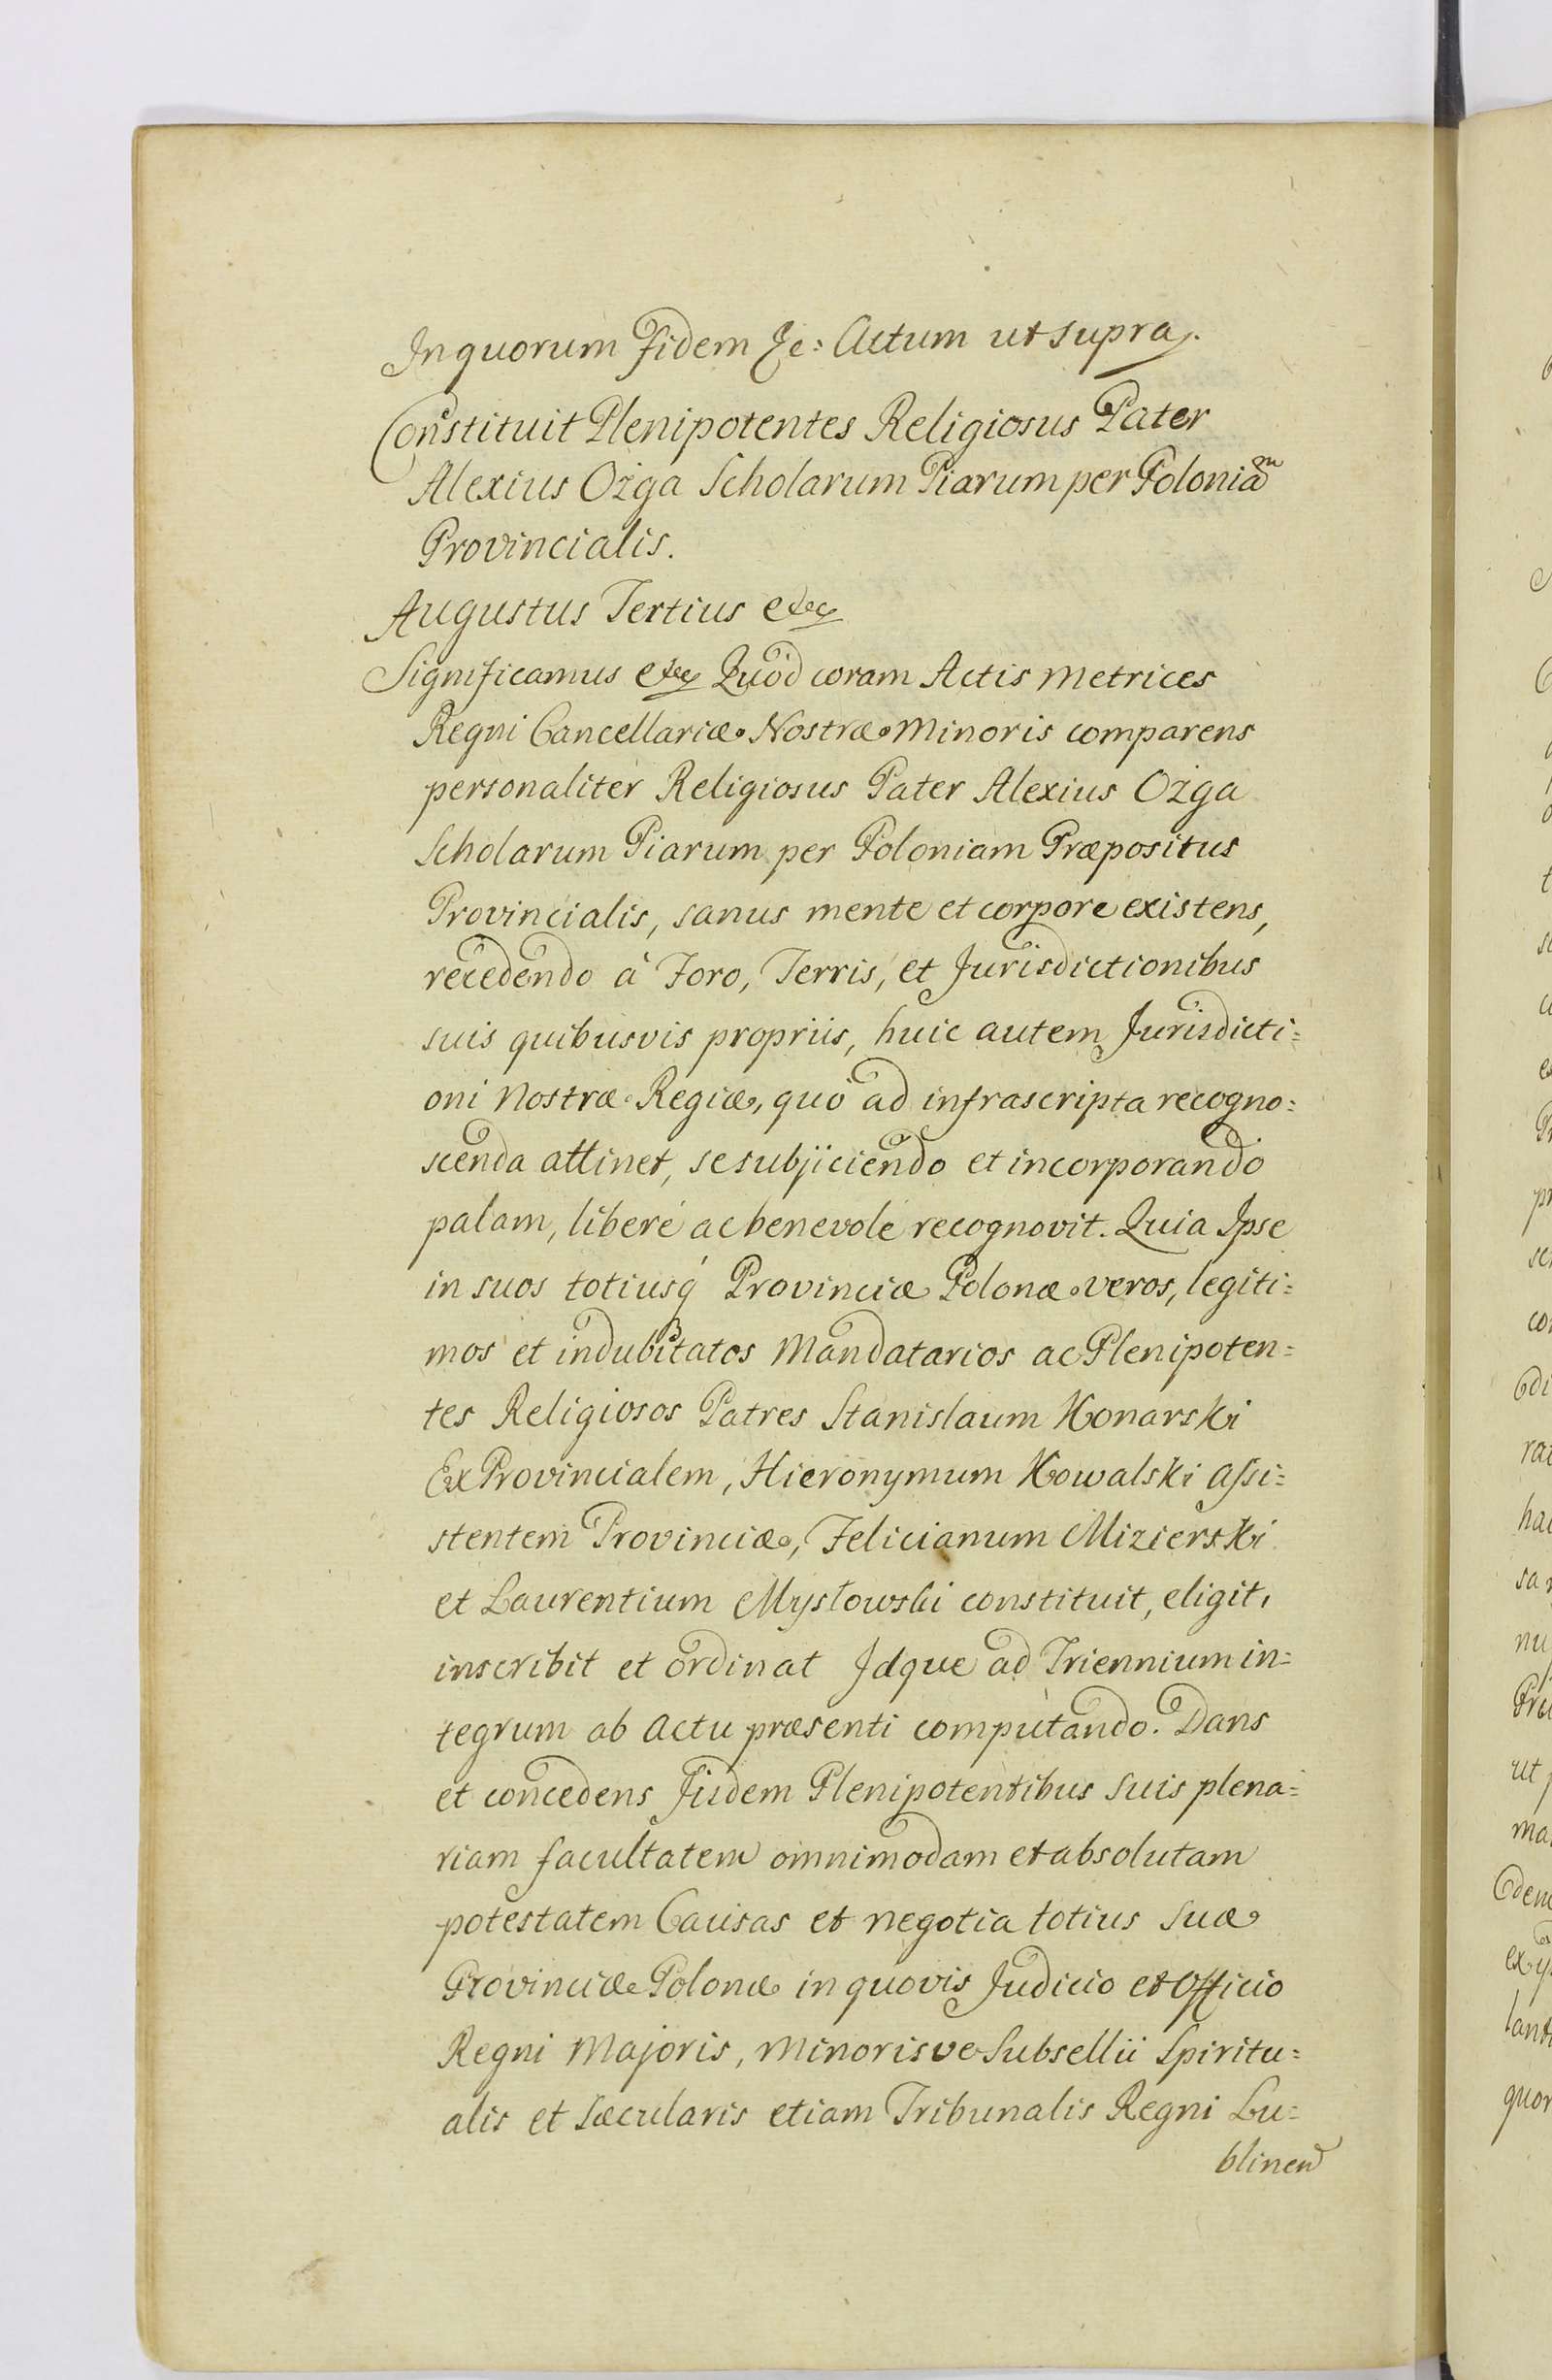 In quorum fidem &c: Actum ut supra.
Constituit Plenipotentes Religiosus Pater
Alexius Ożga Scholarum Piarum per Poloniam
Provincialis.
Augustus Tertius etc
Significamus etc Quòd coram Actis Metrices
Regni Cancellariæ Nostræ Minoris comparens
personalitèr Religiosus Pater Alexius Ożga
Scholarum Piarum per Poloniam Præpositus
Provincialis, sanus mente et corpore existens,
recedendo à Foro, Terris, et Jurisdictionibus
suis quibusvis propriis, huic autem Jurisdicti=
oni Nostræ Regiæ, quò ad infrascripta recogno=
scenda attinet, se subjiciendo et incorporando
palam, liberè ac benevolè recognovit. Quia Ipse
in suos totiusq́ Provinciæ Polonæ veros, legiti=
mos et indubitatos Mandatarios ac Plenipoten=
tes Religiosos Patres Stanislaum Konarski
Ex Provincialem, Hieronymum Kowalski Assi=
stentem Provinciæ, Felicianum Mizierski
et Laurentium Mysłowski constituit, eligit,
inscribit et ordinat Idque ad Triennium in=
tegrum ab Actu præsenti computando. Dans
et concedens Iisdem Plenipotentibus suis plena=
riam facultatem omnimodam et absolutam
potestatem Causas et negotia totius suæ
Provinciæ Polonæ in quovis Judicio et Officio
Regni Majoris, Minorisve Subsellii Spiritu=
alis et Sæcularis etiam Tribunalis Regni Lu=
blinen